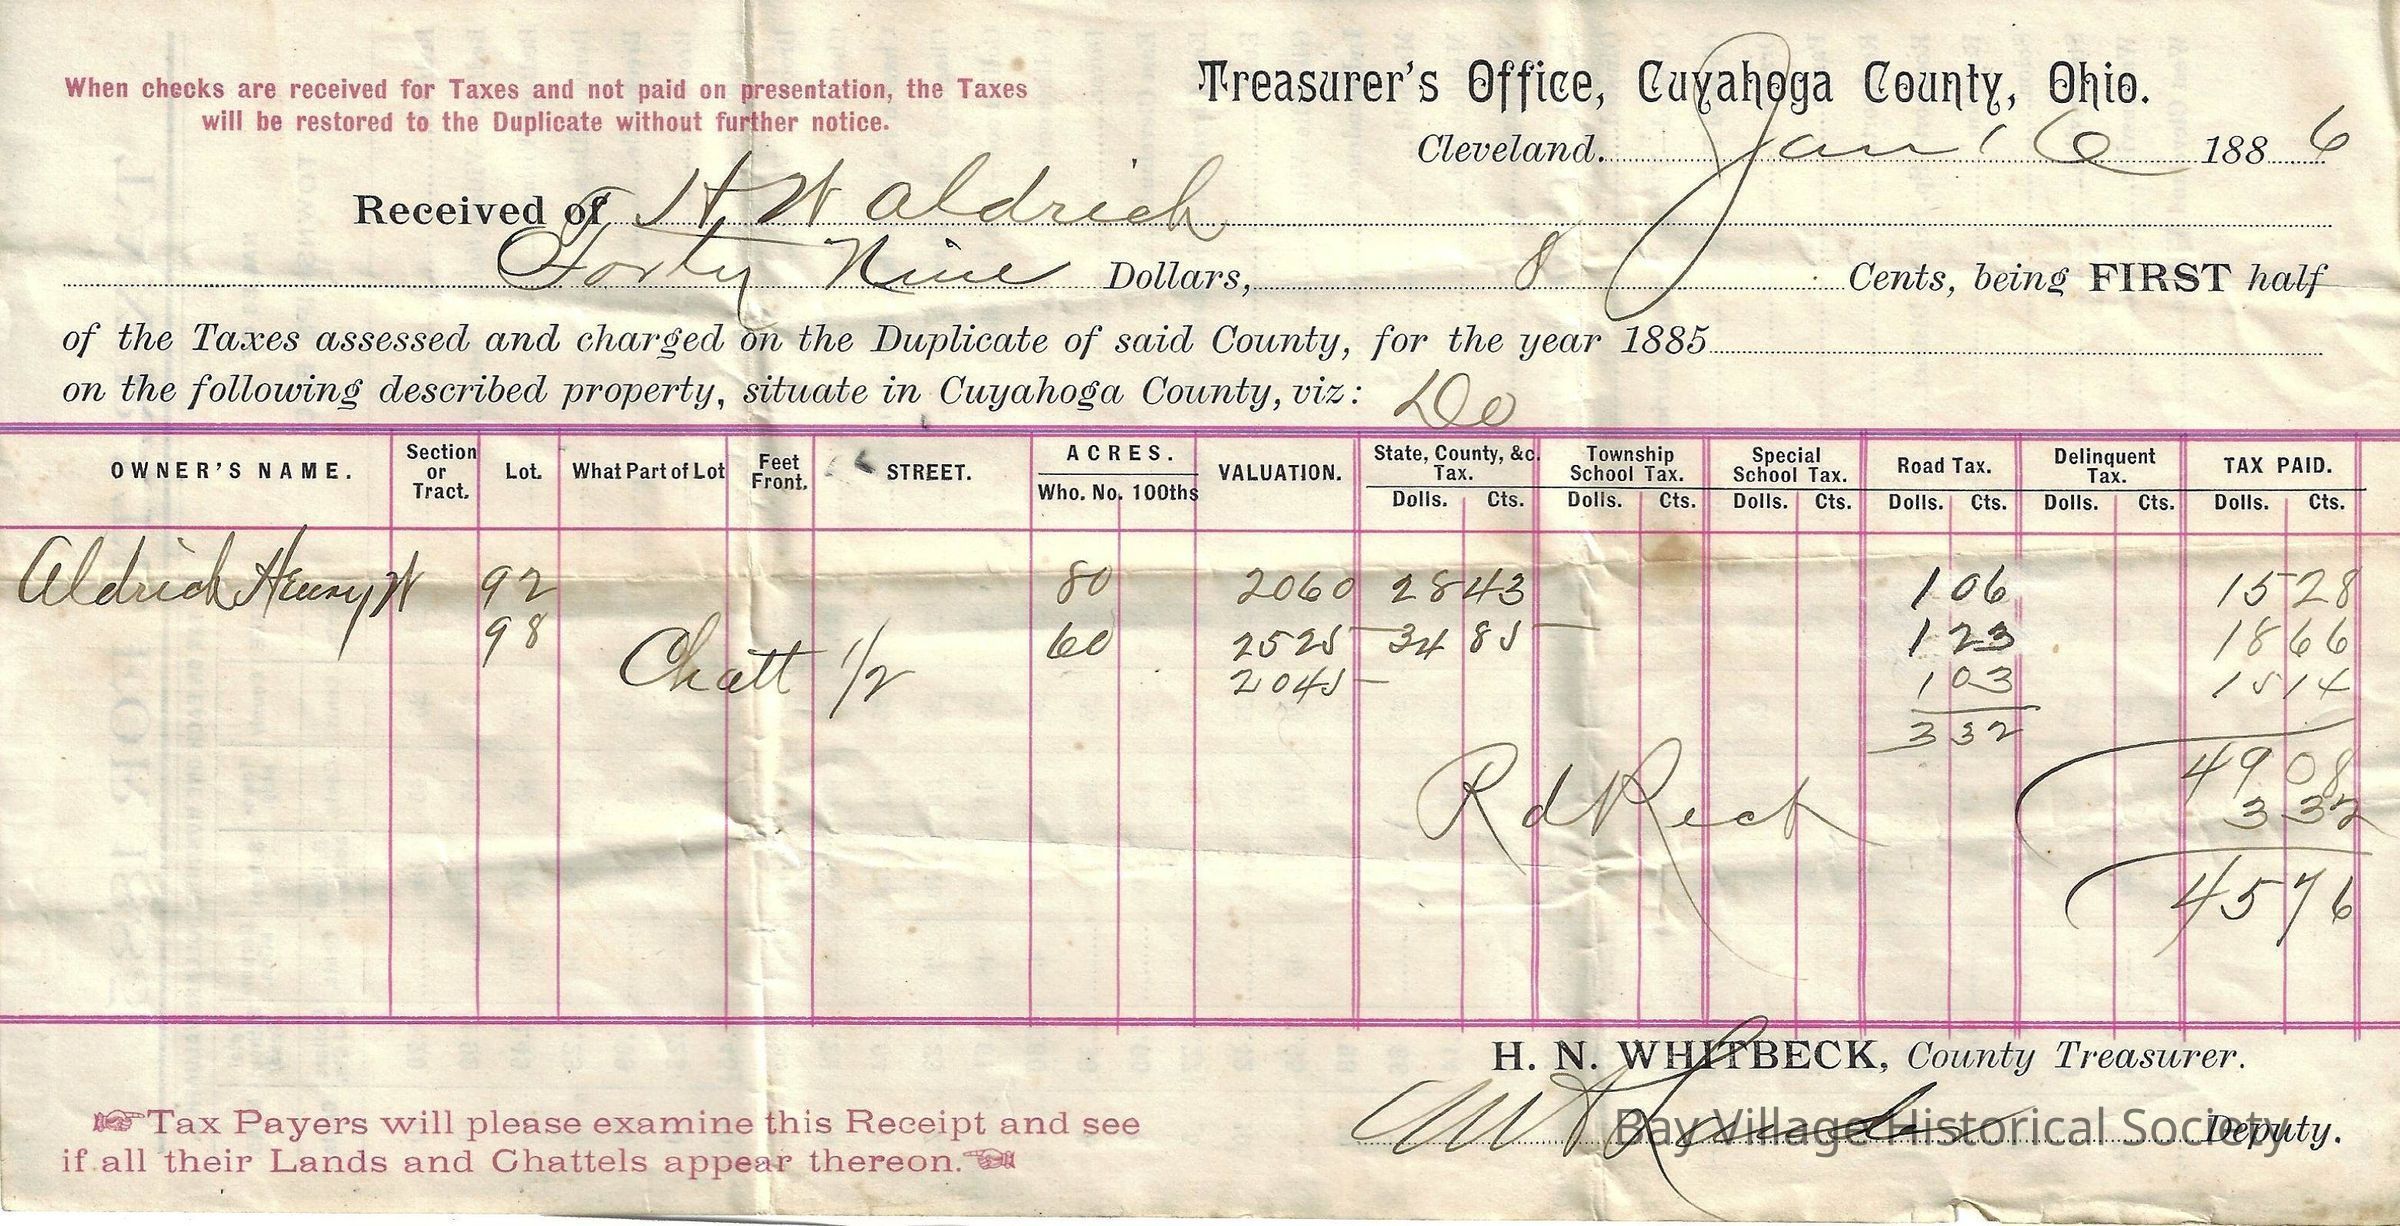 When checks are received for Taxes and not paid on presentation, the Taxes
will be restored to the Duplicate without further notice.
Treasurer's Office, Cuyahoga County, Ohio.
Cleveland. Jan 6 1886
Received of H. W Aldrich
Forty Nine Dollars, 8 Cents, being FIRST half
of the Taxes assessed and charged on the Duplicate of said County, for the year 1885
on the following described property, situate in Cuyahoga County, viz: Do
OWNER'S NAME. Section or Tract. Lot. What Part of Lot Feet Front. STREET. ACRES. Who. No. 100ths VALUATION. State, County, &c. Tax. Dolls. Cts. Township School Tax. Dolls. Cts. Special School Tax. Dolls. Cts. Road Tax. Dolls. Cts. Delinquent Tax. Dolls. Cts. TAX PAID. Dolls. Cts.
Aldrich Henry W 92 80 2060 28 43 1 06 15 28
98 60 2525 34 85 1 23 18 66
Chatt 1/2 2045 1 03 15 14
3 32
49 08
Rd Rect 3 32
45 76
H. N. WHITBECK, County Treasurer.
Deputy.
Tax Payers will please examine this Receipt and see
if all their Lands and Chattels appear thereon.
Bay Village Historical Society